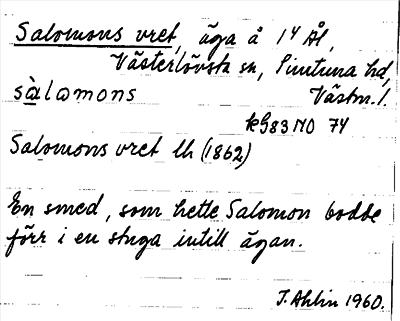 Salomons vret, äga å 1⁴ Ål,
Västerlövsta sn, Simtuna hd,
sàlamons Västm. l.
kG83NO 74
Salomons vret lh (1862)
En smed, som hette Salomon bodde
förr i en stuga intill ägan.
J. Ahlin 1960.